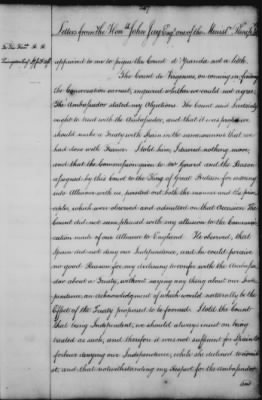 Letter from the Hon. John Jay Esq. one of the Minist.
appeared to me to pique the Count d'Aranda not a little.
The Count de Vergennes, on coming in, finding
the Conversation earnest, inquired whether we could not agree.
The Ambassador stated my Objections. The Count said I certainly
ought to treat with the Ambassador, and that it was proper we
should make a Treaty with Spain in the same manner that we
had done with France. I told him, I desired nothing more,
and that the Commission given to Mr. Gerard and the Reason
assigned by this Court to the King of Great Britain for entering
into Alliance with us, pointed out both the manner and the prin-
ciples, which were observed and admitted on that Occasion. The
Count did not seem pleased with any allusion to the Communi-
cation made of our Alliance to England. He observed, that
Spain did not deny our Independence, and he could perceive
no good Reason for my declining to confer with the Ambassa-
dor about a Treaty, without saying any thing about our Inde-
pendence, an acknowledgment of which would naturally be the
Effect of the Treaty proposed to be formed. I told the Count
that being Independent, we should always insist on being
treated as such, and therefore it was not sufficient for Spain to
forbear denying our Independence, while she declined to admit
it, and that notwithstanding my Respect for the Ambassador
and